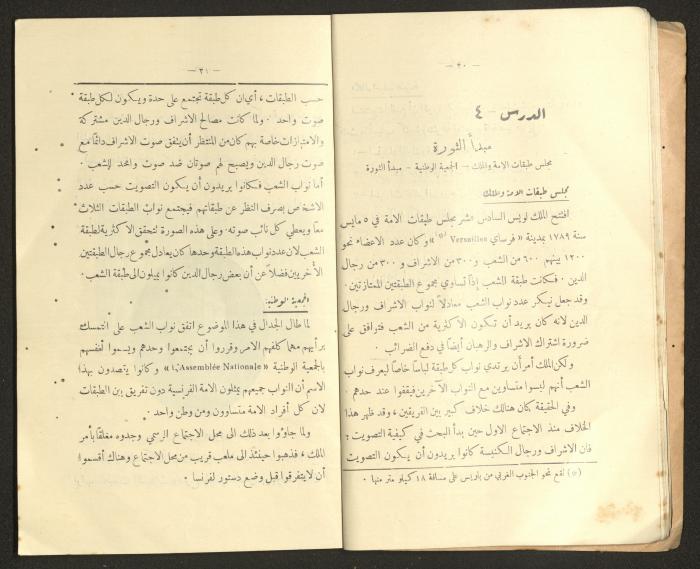 — ٣٠ —
الدرس - ٤
مبدأ الثورة
مجلس طبقات الامة والملك – الجمعية الوطنية – مبدأ الثورة
مجلس طبقات الامة والملك
افتتح الملك لويس السادس عشر مجلس طبقات الامة في ٥ مايس
سنة ١٧٨٩ بمدينة « فرساي Versailles (*) » وكان عدد الاعضاء نحو
١٢٠٠ بينهم ٦٠٠ من الشعب و ٣٠٠ من الاشراف و ٣٠٠ من رجال
الدين . فكانت طبقة الشعب إذًا تساوي مجموع الطبقتين الممتازتين .
وقد جعل نيكر عدد نواب الشعب معادلاً لنواب الاشراف ورجال
الدين لانه كان يريد أن تكون الاكثرية من الشعب فتوافق على
ضرورة اشتراك الاشراف والرهبان أيضًا في دفع الضرائب .
ولكن الملك أمر أن يرتدي نواب كل طبقة لباسًا خاصًا ليعرف نواب
الشعب أنهم ليسوا متساوين مع النواب الآخرين فيقفوا عند حدهم .
وفي الحقيقة كان هنالك خلاف كبير بين الفريقين ، وقد ظهر هذا
الخلاف منذ الاجتماع الاول حين بدأ البحث في كيفية التصويت :
فان الاشراف ورجال الكنيسة كانوا يريدون أن يكون التصويت
(*) تقع نحو الجنوب الغربي من باريس على مسافة ١٨ كيلو متر منها .
— ٣١ —
حسب الطبقات ، أي ان كل طبقة تجتمع على حدة ويكون لكل طبقة
صوت واحد . ولما كانت مصالح الاشراف ورجال الدين مشتركة
والامتيازات خاصة بهم كان من المنتظر أن يتفق صوت الاشراف دائمًا مع
صوت رجال الدين ويصبح لهم صوتان ضد صوت واحد للشعب .
أما نواب الشعب فكانوا يريدون أن يكون التصويت حسب عدد
الاشخاص بصرف النظر عن طبقاتهم فيجتمع نواب الطبقات الثلاث
معًا ويعطي كل نائب صوته . وعلى هذه الصورة تتحقق الاكثرية لطبقة
الشعب لان عدد نواب هذه الطبقة وحدها كان يعادل مجموع رجال الطبقتين
الأخريين فضلاً عن أن بعض رجال الدين كانوا يميلون الى طبقة الشعب .
الجمعية الوطنية:
لما طال الجدال في هذا الموضوع اتفق نواب الشعب على التمسك
برأيهم مهما كلفهم الامر وقرروا أن يجتمعوا وحدهم ويسموا أنفسهم
بالجمعية الوطنية « Assemblée Nationale » وكانوا يقصدون بهذا
الاسم أن النواب جميعهم يمثلون الامة الفرنسية دون تفريق بين الطبقات
لان كل أفراد الامة متساوون ومن وطن واحد .
ولما جاؤوا بعد ذلك الى محل الاجتماع الرسمي وجدوه مغلقًا بأمر
الملك ، فذهبوا حينئذ الى ملعب قريب من محل الاجتماع وهناك أقسموا
أن لا يتفرقوا قبل وضع دستور لفرنسا .